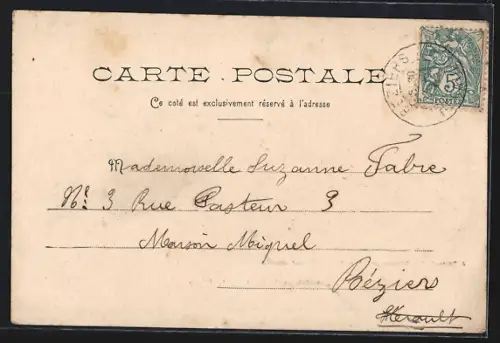 CARTE POSTALE
Ce coté est exclusivement réservé à l'adresse
BEZIERS
5c
POSTES
Mademoiselle Suzanne Fabre
No 3 Rue Pasteur 3
Maison Miquel
Béziers
Hérault